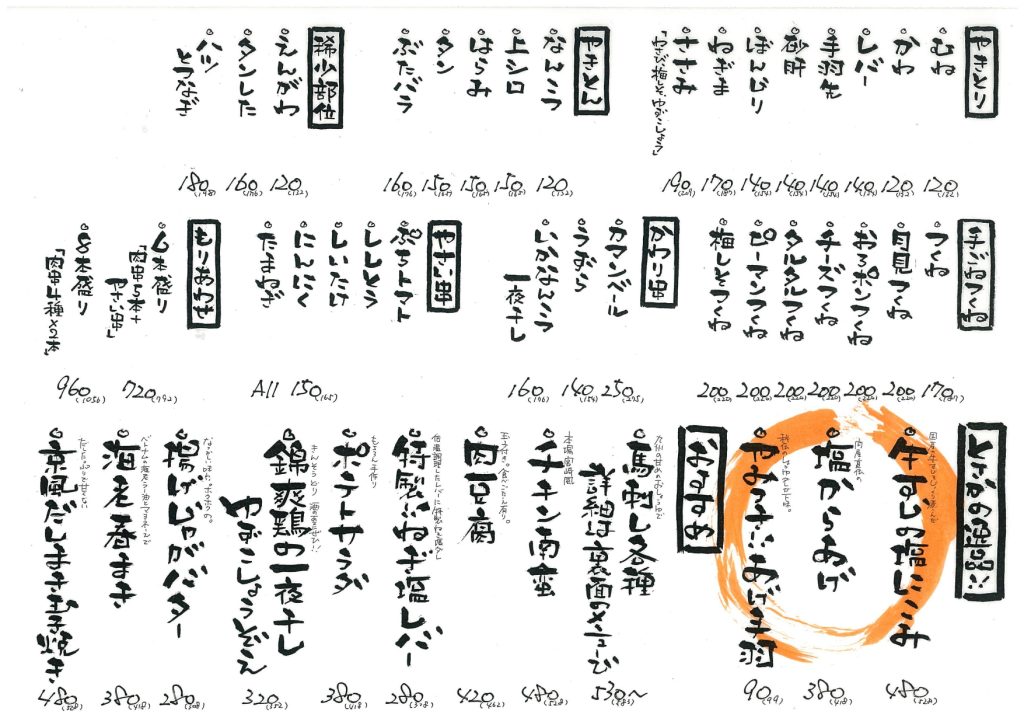 やきとり
むね 120(132)
かわ 120(132)
レバー 140(154)
手羽先 140(154)
砂肝 140(154)
ぼんじり 140(154)
ねぎま 170(187)
ささみ 190(209)
「わさび、梅しそ、ゆずこしょう」
やきとん
なんこつ 120(132)
上シロ 150(165)
はらみ 150(165)
タン 150(165)
ぶたバラ 160(176)
稀少部位
えんがわ 120(132)
タンした 160(176)
ハツ
とつなぎ 180(198)
手ごねつくね
つくね 170(187)
月見つくね 200(220)
おろポンつくね 200(220)
チーズつくね 200(220)
タルタルつくね 200(220)
ピーマンつくね 200(220)
梅しそつくね 200(220)
かわり串
カマンベール 250(275)
うずら 140(154)
いかなんこつ
一夜干し 160(176)
やさい串
ぷちトマト
ししとう
しいたけ
にんにく
たまねぎ
All 150(165)
もりあわせ
6本盛り
「肉串5本+
やさい串」 720(792)
8本盛り
「肉串4種×2本」 960(1056)
とさかの名物!!
牛すじの塩にこみ 480(528)
国産の
塩からあげ 380(418)
やみつきにあげ手羽 90(99)
おすすめ
馬刺し各種
詳細は裏面のメニューび 530〜(583)
九州の甘めのおしょうゆで
チキン南蛮 480(528)
本場宮崎風
肉豆腐 420(462)
玉子付き。食べごたえ有り。
特製ねぎ塩レバー 280(308)
低温調理したレバーに特製ねぎ塩ダレ
ポテトサラダ 380(418)
もちろん手作り
錦爽鶏の一夜干し
ゆずこしょうぞえ 320(352)
きんそうどり
揚げじゃがバター 280(308)
なつかしい味わい。ホクホクの。
海老春まき 380(418)
京風だしまき玉子焼き 480(528)
だしたっぷりで甘くない